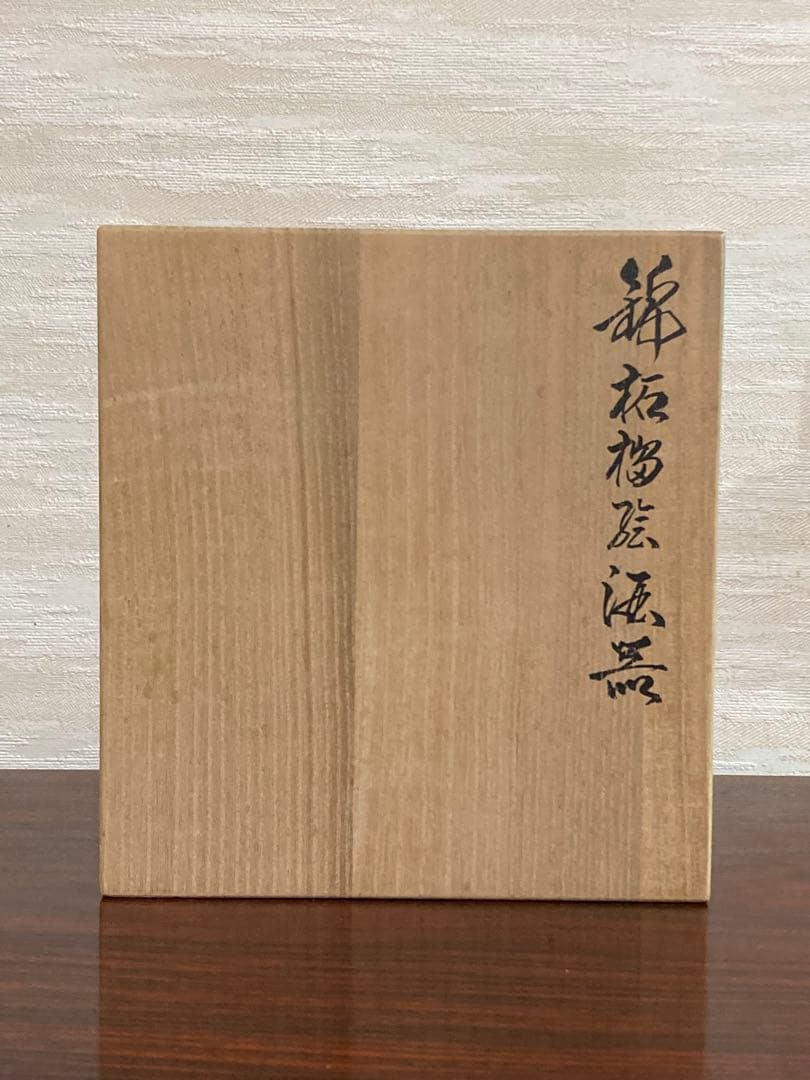 錦柘榴絵酒器